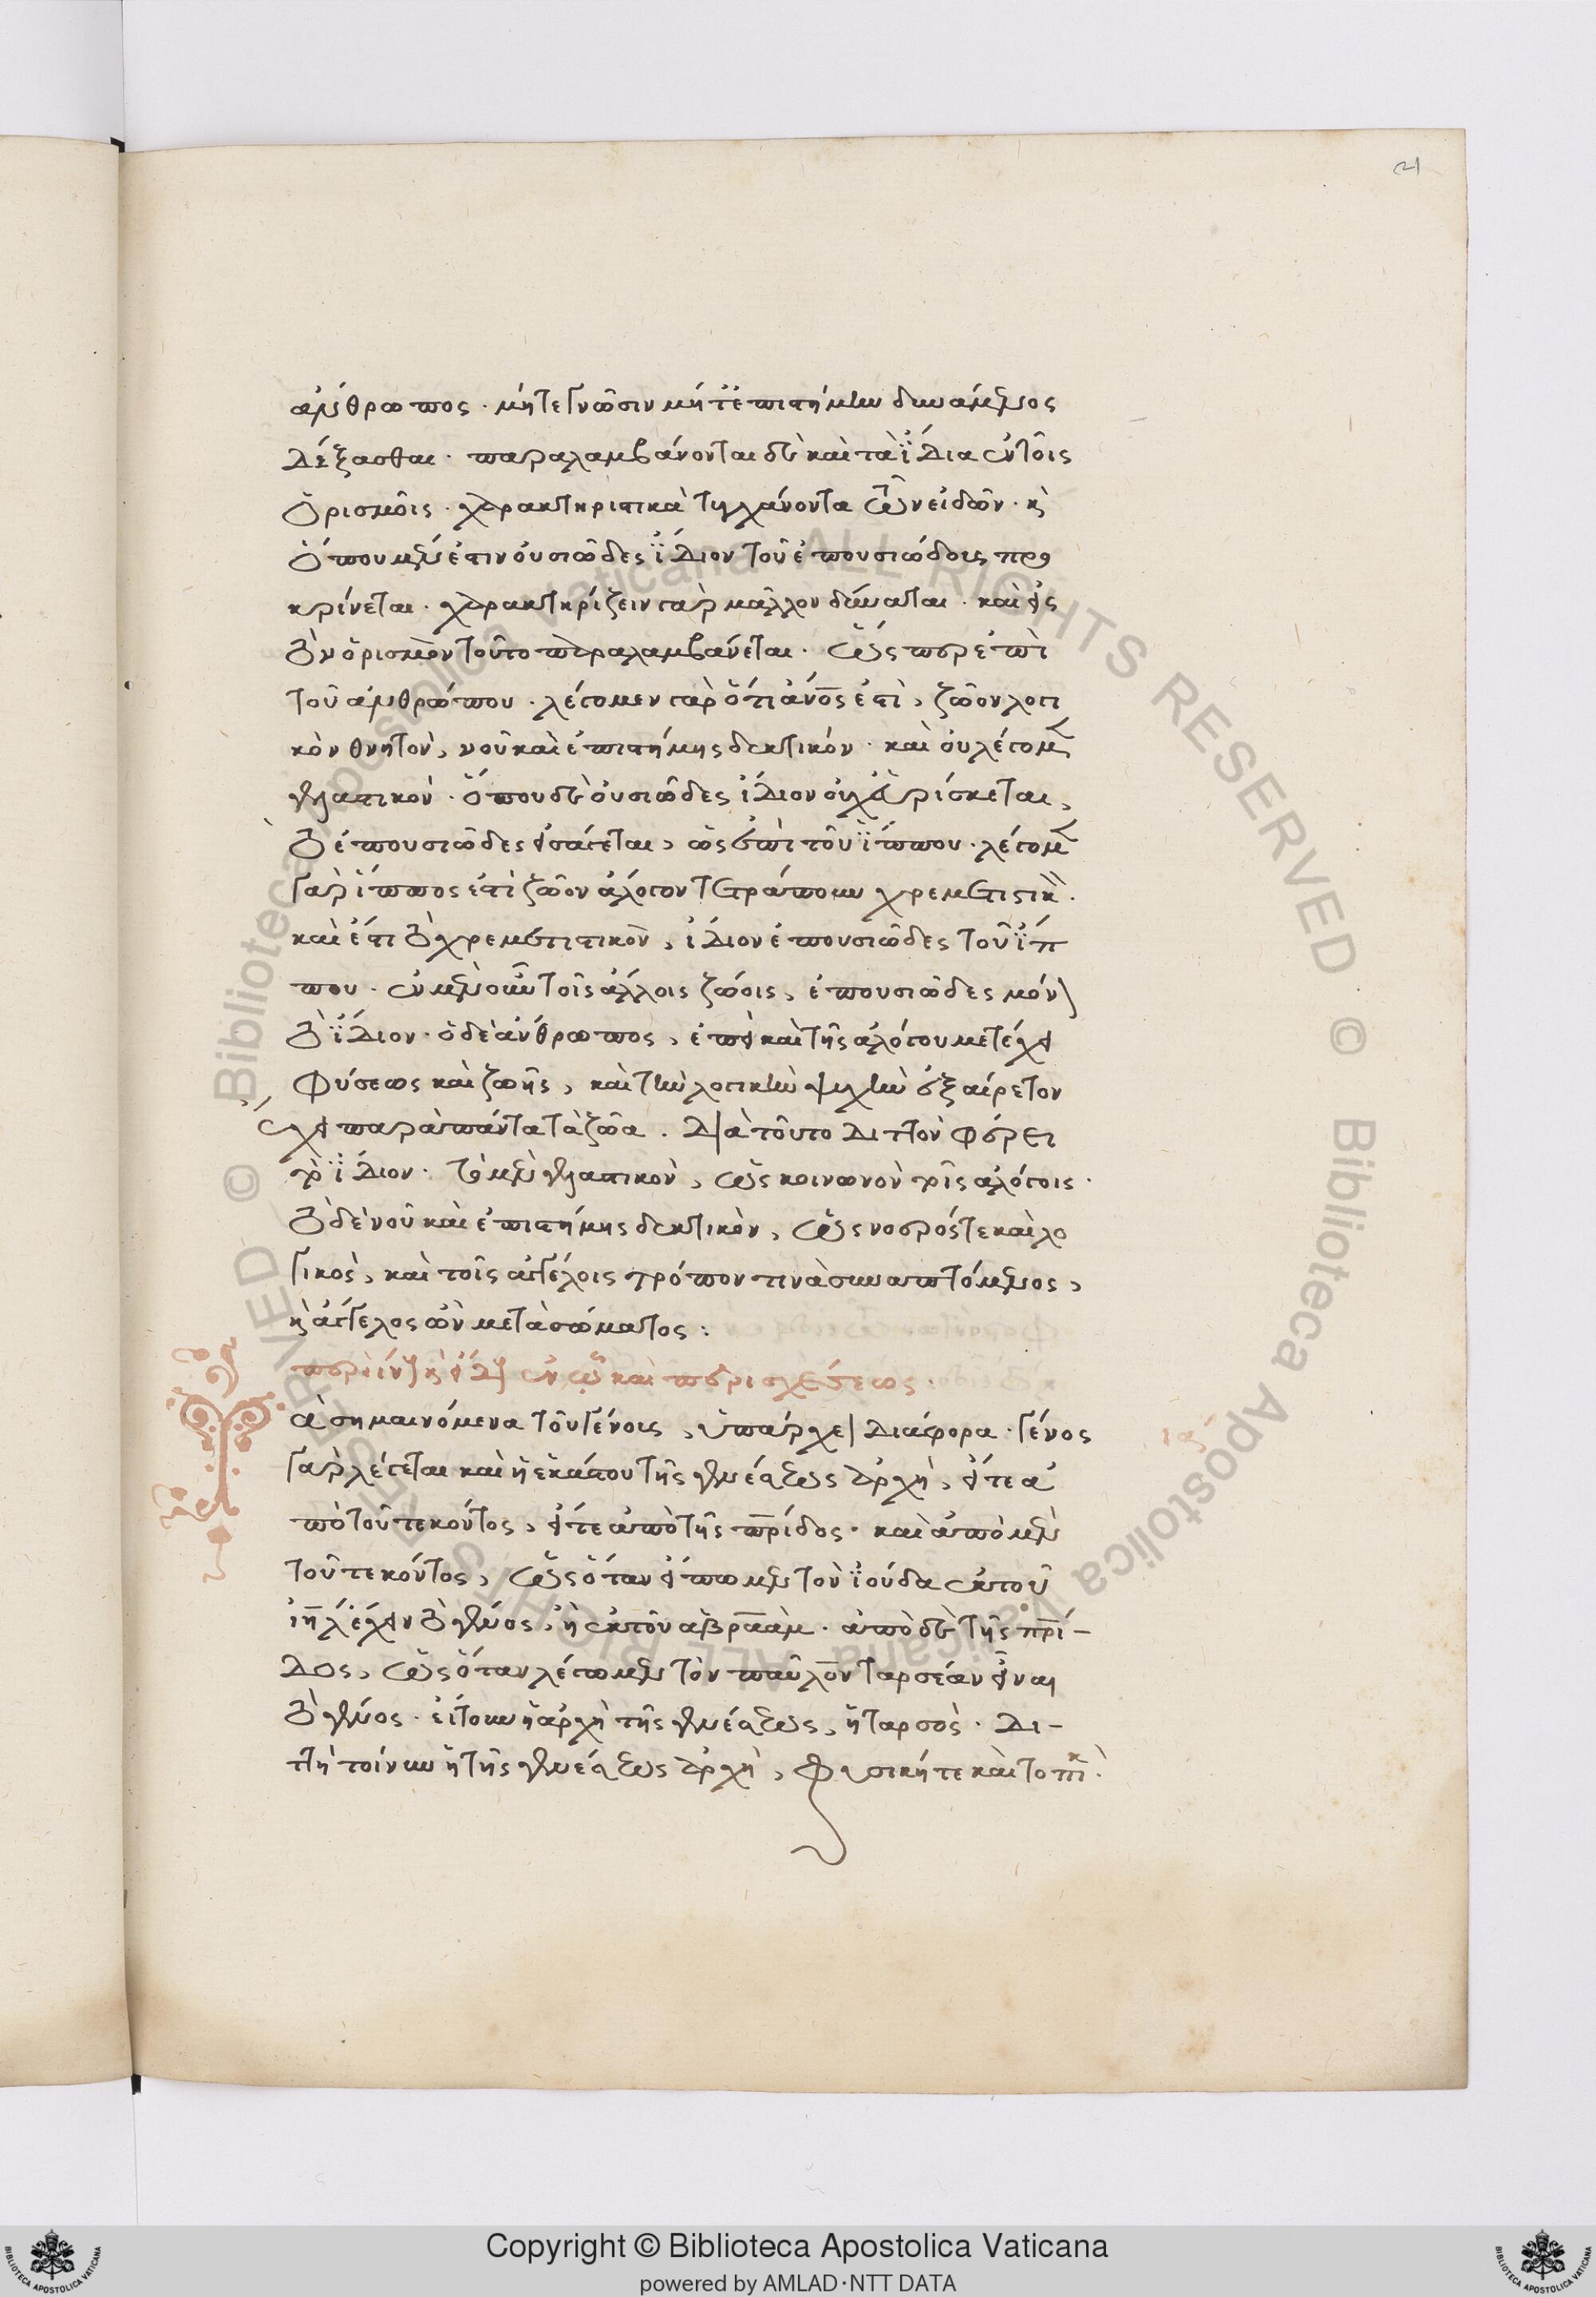 21
ἄνθρωπος · μήτε γνῶσιν μήτ' ἐπιστήμην δυνάμενος
δέξασθαι · παραλαμβάνονται δὲ καὶ τὰ ἴδια ἐν τοῖς
ὁρισμοῖς · χαρακτηριστικὰ τυγχάνοντα τῶν εἰδῶν · κὶ
ὅπου μὲν ἐστιν οὐσιῶδες ἴδιον τοῦ ἐπουσιώδους προ
κρίνεται · χαρακτηρίζειν γὰρ μᾶλλον δύναται · καὶ εἰς
τὸν ὁρισμὸν τοῦτο παραλαμβάνεται · ὥσπερ ἐπὶ
τοῦ ἀνθρώπου · λέγομεν γὰρ ὅτι ἄνος ἐστὶ, ζῶον λογι
κὸν θνητὸν, νοῦ καὶ ἐπιστήμης δεκτικόν · καὶ οὐ λέγομεν
γελαστικὸν · ὅπου δὲ οὐσιῶδες ἴδιον οὐχ εὑρίσκεται,
τὸ ἐπουσιῶδες εἰσάγεται, ὡς ἐπὶ τοῦ ἵππου · λέγομεν
γὰρ ἵππος ἐστὶ ζῶον ἄλογον τετράπουν χρεμετιστικὸν ·
καὶ ἔστι τὸ χρεμετιστικὸν, ἴδιον ἐπουσιῶδες τοῦ ἵπ
που · ἐν μὲν οὖν τοῖς ἄλλοις ζώοις, ἐπουσιῶδες μόνον
τὸ ἴδιον · ὁ δὲ ἄνθρωπος, ἐπεὶ καὶ τῆς ἀλόγου μετέχει
φύσεως καὶ ζωῆς, καὶ τὴν λογικὴν ψυχὴν ἐξαίρετον
ἔχει παρὰ πάντα τὰ ζῶα · διὰ τοῦτο διττὸν φέρει
τὸ ἴδιον · τὸ μὲν γελαστικὸν, ὡς κοινωνὸν τοῖς ἀλόγοις ·
τὸ δὲ νοῦ καὶ ἐπιστήμης δεκτικὸν, ὡς νοερός τε καὶ λο
γικὸς, καὶ τοῖς ἀγγέλοις τρόπον τινὰ συναπτόμενος,
κὶ ἄγγελος ὢν μετὰ σώματος :
περὶ γένους κὶ εἴδους ἐν ᾧ καὶ περὶ σχέσεως ·
Τὰ σημαινόμενα τοῦ γένους, ὑπάρχει διάφορα · γένος ια
γὰρ λέγεται καὶ ἡ ἑκάστου τῆς γενέσεως ἀρχὴ, εἴτε ἀ
πὸ τοῦ τεκόντος, εἴτε ἀπὸ τῆς πρίδος · καὶ ἀπὸ μὲν
τοῦ τεκόντος, ὡς ὅταν εἴπωμεν τὸν ἰούδα ἐκ τοῦ
ιηλ ἔχειν τὸ γένος, ἢ ἐκ τοῦ αβραὰμ · ἀπὸ δὲ τῆς πρί-
δος, ὡς ὅταν λέγωμεν τὸν παῦλον ταρσέαν εἶναι
τὸ γένος · εἴγουν ἡ ἀρχὴ τῆς γενέσεως, ἡ ταρσὸς · δι-
ττὴ τοίνυν ἡ τῆς γενέσεως ἀρχὴ, φυσική τε καὶ τοπικὴ ·
Copyright © Biblioteca Apostolica Vaticana
powered by AMLAD·NTT DATA
BIBLIOTECA APOSTOLICA VATICANA
BIBLIOTECA APOSTOLICA VATICANA
© Biblioteca Apostolica Vaticana ALL RIGHTS RESERVED © Biblioteca Apostolica Vaticana ALL RIGHTS RESERVED